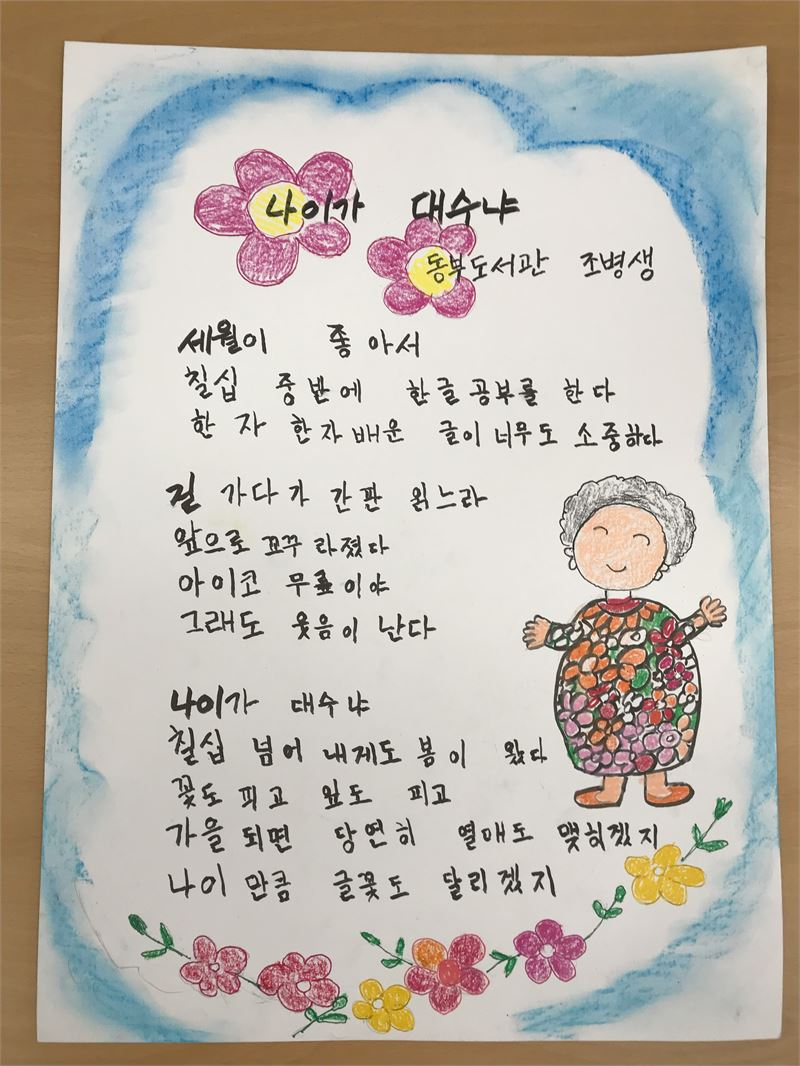 나이가 대수냐
동부도서관 조병생
세월이 좋아서
칠십 중반에 한글공부를 한다
한 자 한자 배운 글이 너무도 소중하다
길 가다가 간판 읽느라
앞으로 꼬꾸라졌다
아이코 무릎이야
그래도 웃음이 난다
나이가 대수냐
칠십 넘어 내게도 봄이 왔다
꽃도 피고 잎도 피고
가을 되면 당연히 열매도 맺히겠지
나이 만큼 글꽃도 달리겠지